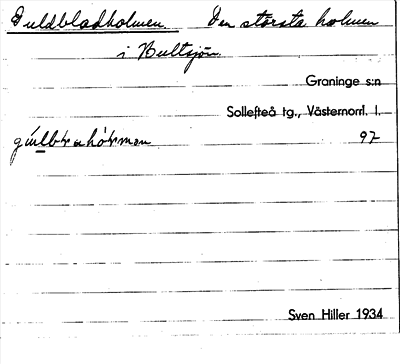 Guldbladholmen Den största holmen
i Hultsjön
Graninge s:n
Sollefteå tg., Västernorrl. l.
97
Sven Hiller 1934